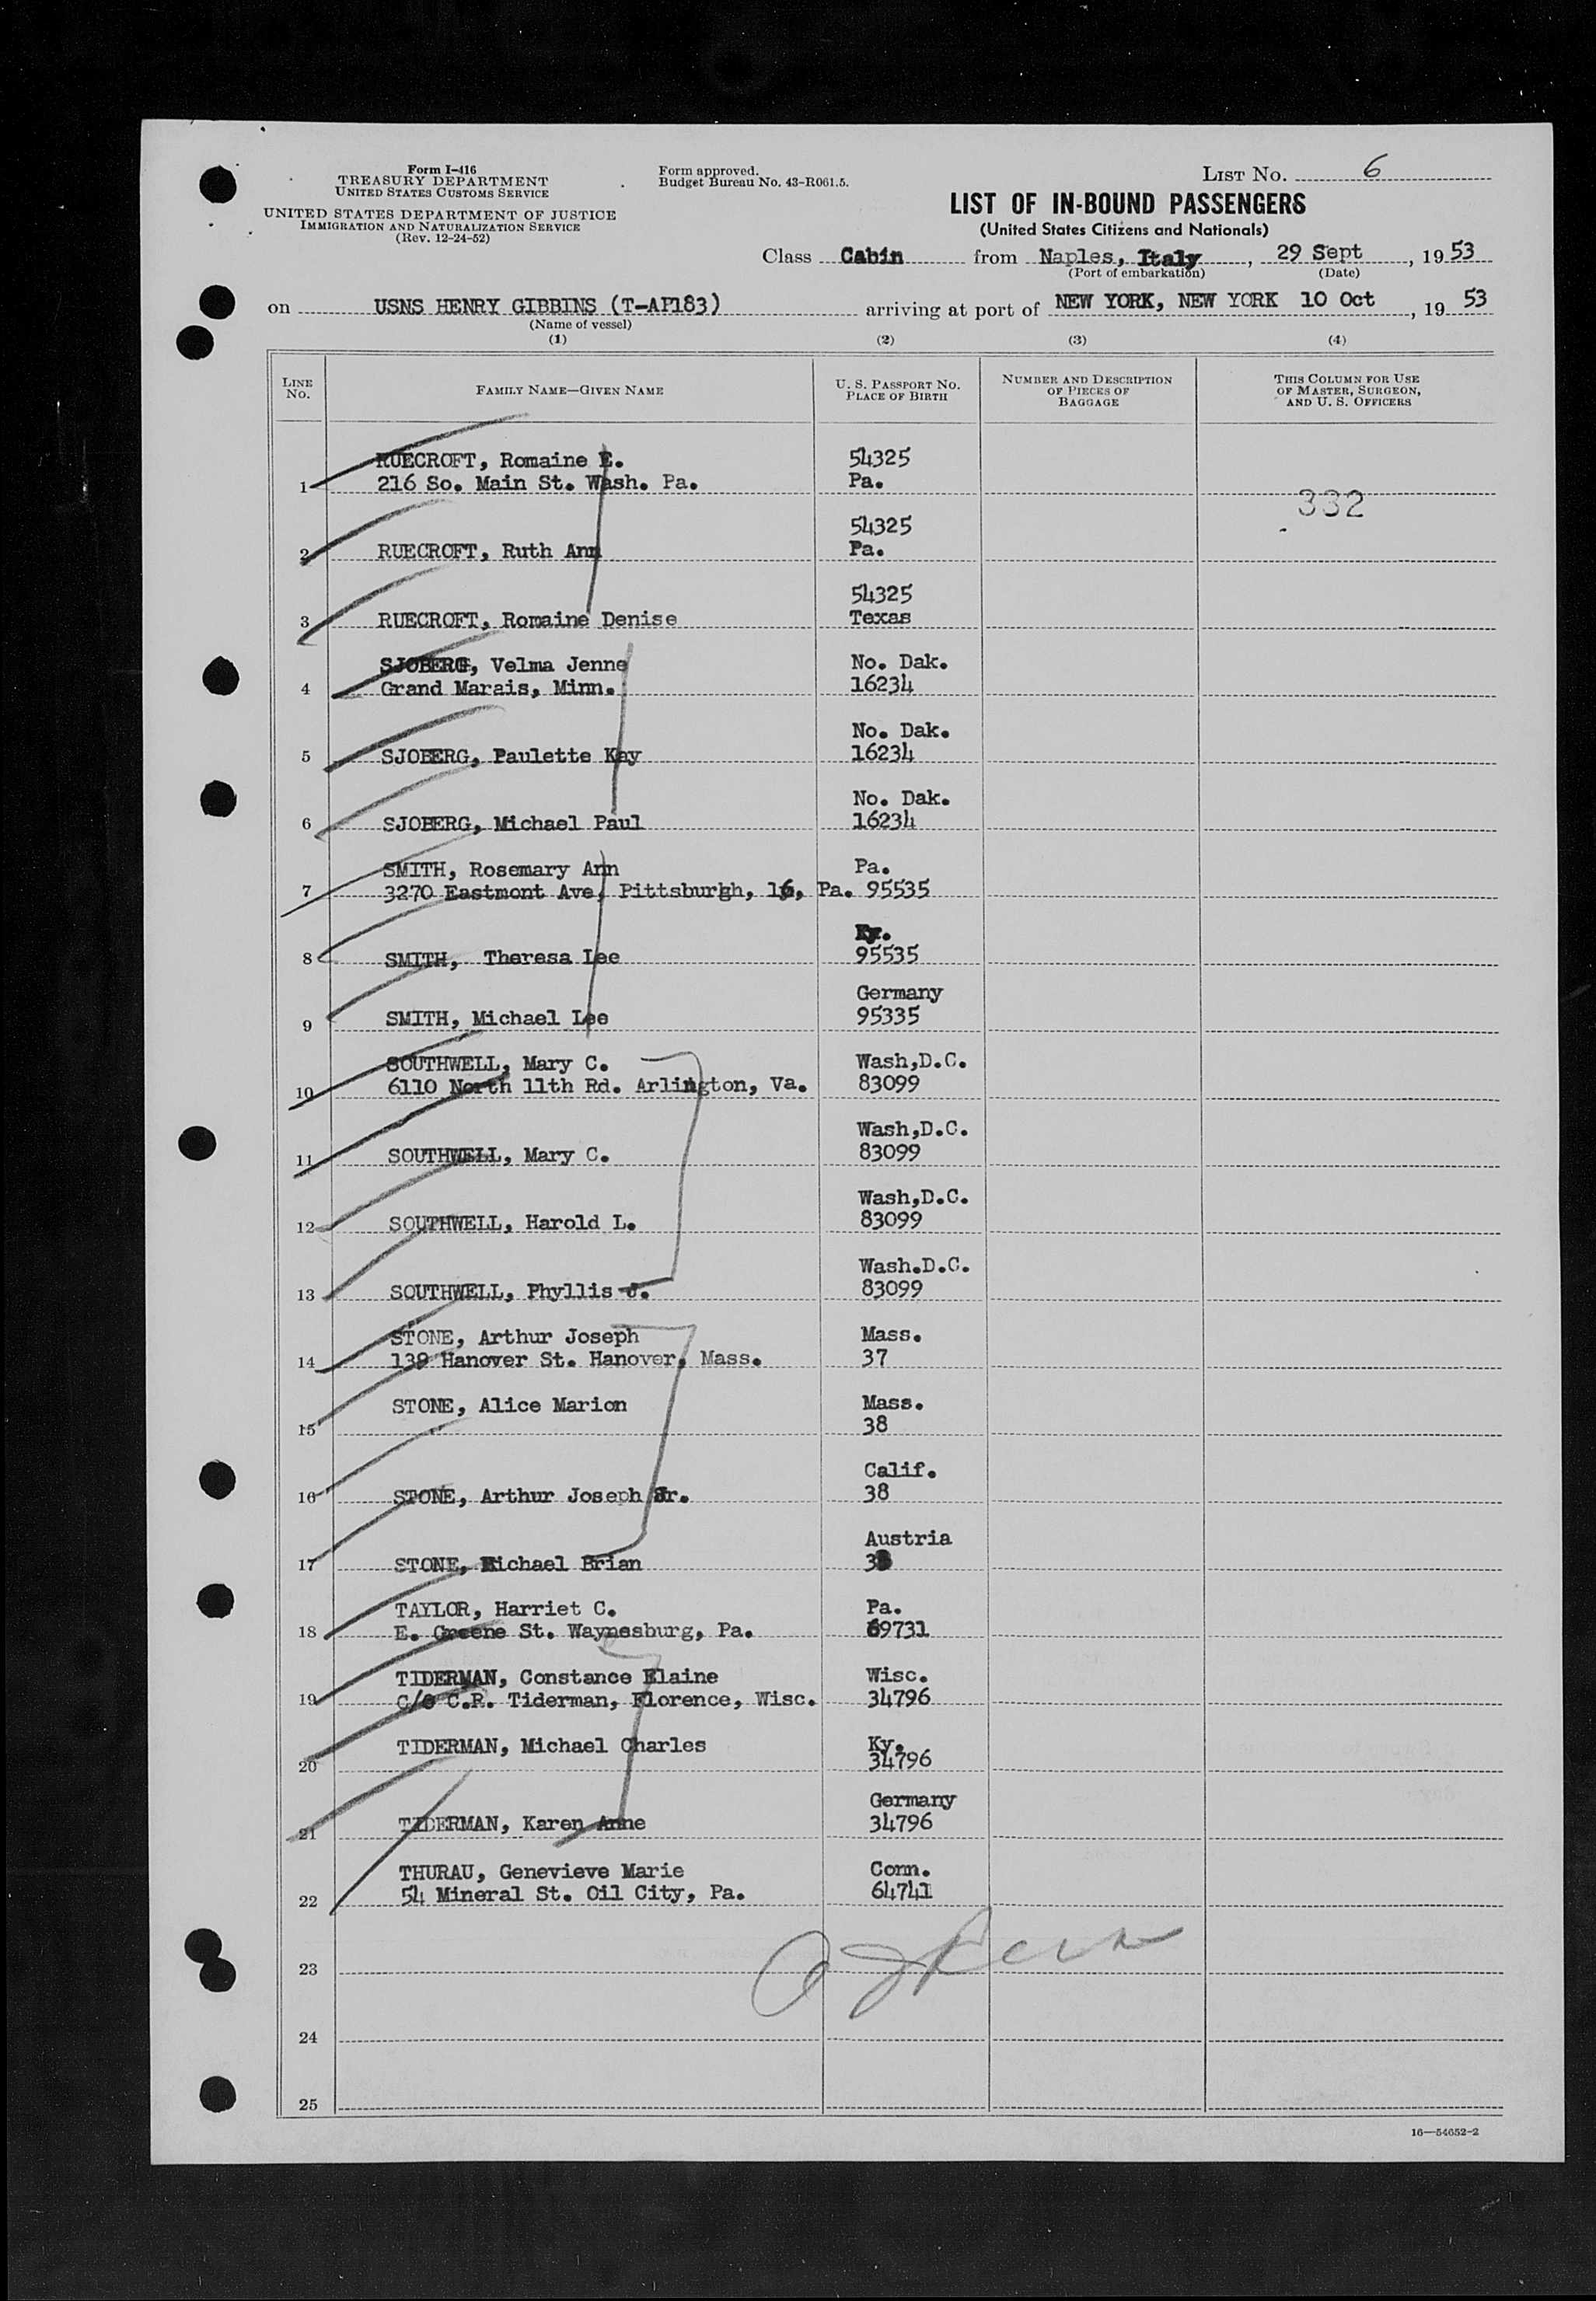 Form I-416
TREASURY DEPARTMENT
UNITED STATES CUSTOMS SERVICE
UNITED STATES DEPARTMENT OF JUSTICE
IMMIGRATION AND NATURALIZATION SERVICE
(Rev. 12-24-52)
Form approved.
Budget Bureau No. 43-R061.5.
LIST NO. 6
LIST OF IN-BOUND PASSENGERS
(United States Citizens and Nationals)
Class Cabin from Naples, Italy, 29 Sept, 19 53
(Port of embarkation) (Date)
on USNS HENRY GIBBINS (T-AP183) arriving at port of NEW YORK, NEW YORK 10 Oct, 19 53
(Name of vessel)
(1) (2) (3) (4)
LINE NO. FAMILY NAME—GIVEN NAME U. S. PASSPORT NO. PLACE OF BIRTH NUMBER AND DESCRIPTION OF PIECES OF BAGGAGE THIS COLUMN FOR USE OF MASTER, SURGEON, AND U. S. OFFICERS
RUECROFT, Romaine E. 54325
1 216 So. Main St. Wash. Pa. Pa.
332
54325
2 RUECROFT, Ruth Ann Pa.
54325
3 RUECROFT, Romaine Denise Texas
SJOBERG, Velma Jenne No. Dak.
4 Grand Marais, Minn. 16234
No. Dak.
5 SJOBERG, Paulette Kay 16234
No. Dak.
6 SJOBERG, Michael Paul 16234
SMITH, Rosemary Ann Pa.
7 3270 Eastmont Ave, Pittsburgh, 16, Pa. 95535
Ky.
8 SMITH, Theresa Lee 95535
Germany
9 SMITH, Michael Lee 95335
SOUTHWELL, Mary C. Wash,D.C.
10 6110 North 11th Rd. Arlington, Va. 83099
Wash,D.C.
11 SOUTHWELL, Mary C. 83099
Wash,D.C.
12 SOUTHWELL, Harold L. 83099
Wash.D.C.
13 SOUTHWELL, Phyllis J. 83099
STONE, Arthur Joseph Mass.
14 139 Hanover St. Hanover, Mass. 37
STONE, Alice Marion Mass.
15 38
Calif.
16 STONE, Arthur Joseph Jr. 38
Austria
17 STONE, Michael Brian 38
TAYLOR, Harriet C. Pa.
18 E. Greene St. Waynesburg, Pa. 69731
TIDERMAN, Constance Elaine Wisc.
19 C/O C.R. Tiderman, Florence, Wisc. 34796
TIDERMAN, Michael Charles Ky.
20 34796
Germany
21 TIDERMAN, Karen Anne 34796
THURAU, Genevieve Marie Conn.
22 54 Mineral St. Oil City, Pa. 64741
23
24
25
16—54652-2